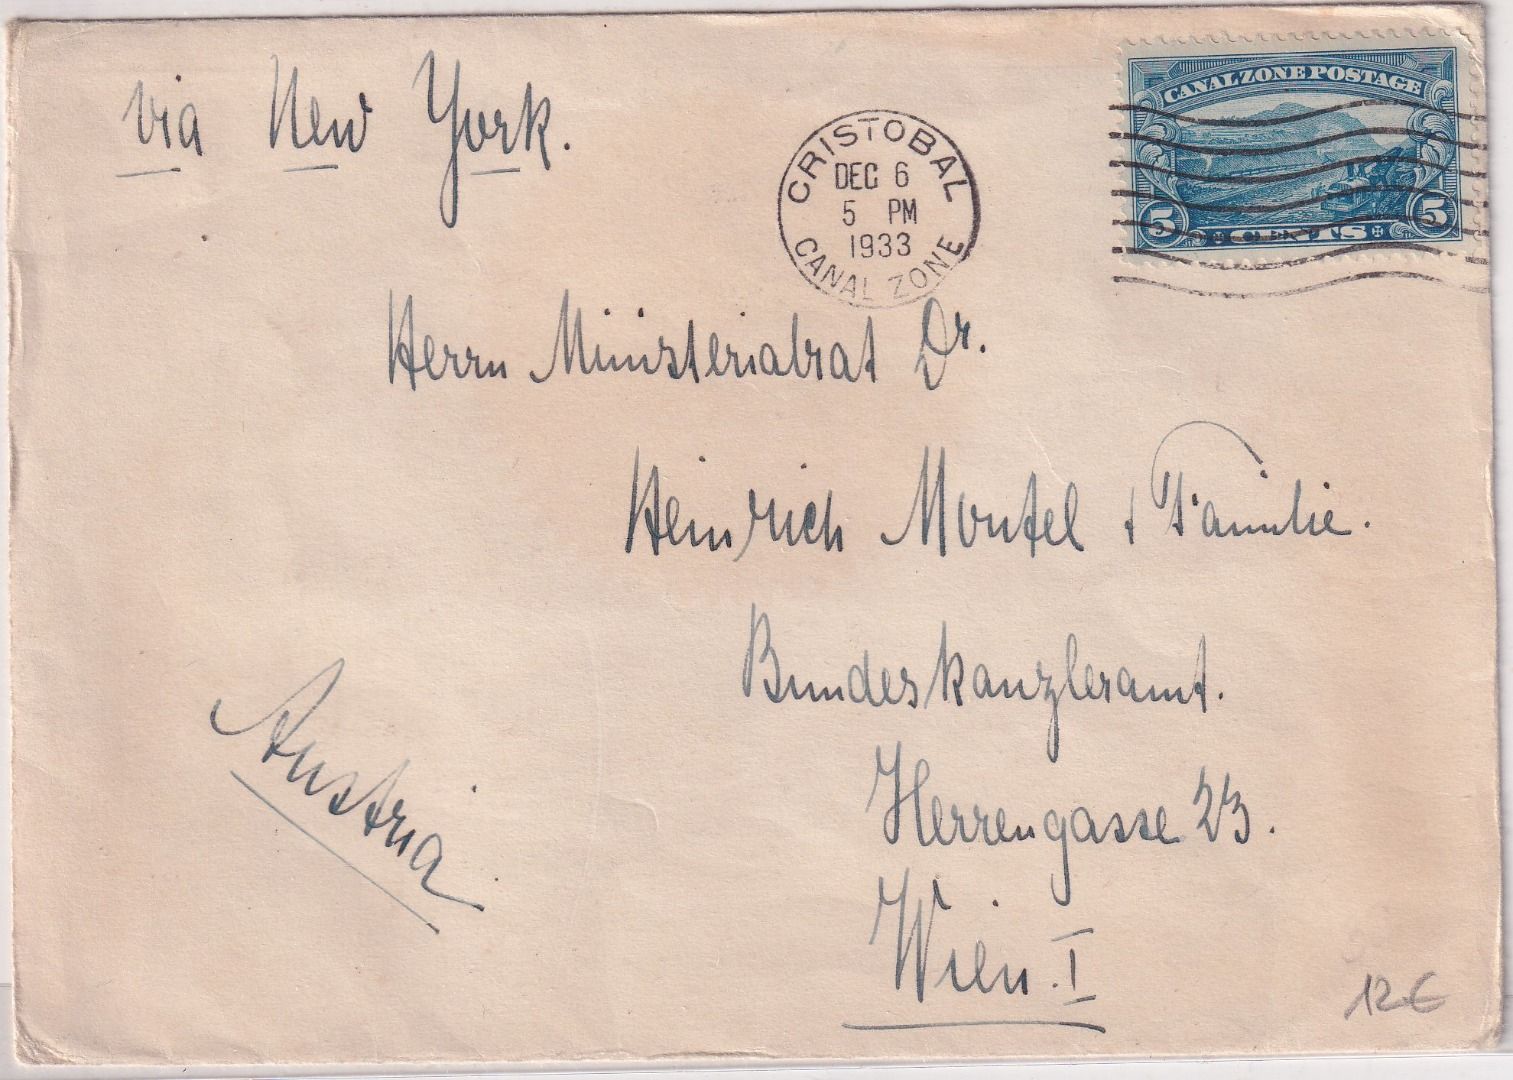 via New York.
CRISTOBAL
DEC 6
5 PM
1933
CANAL ZONE
CANAL ZONE POSTAGE
5 CENTS 5
Herrn Ministerialrat Dr.
Heinrich Montel + Familie.
Bundeskanzleramt.
Herrengasse 23.
Wien. I
Austria
12 €